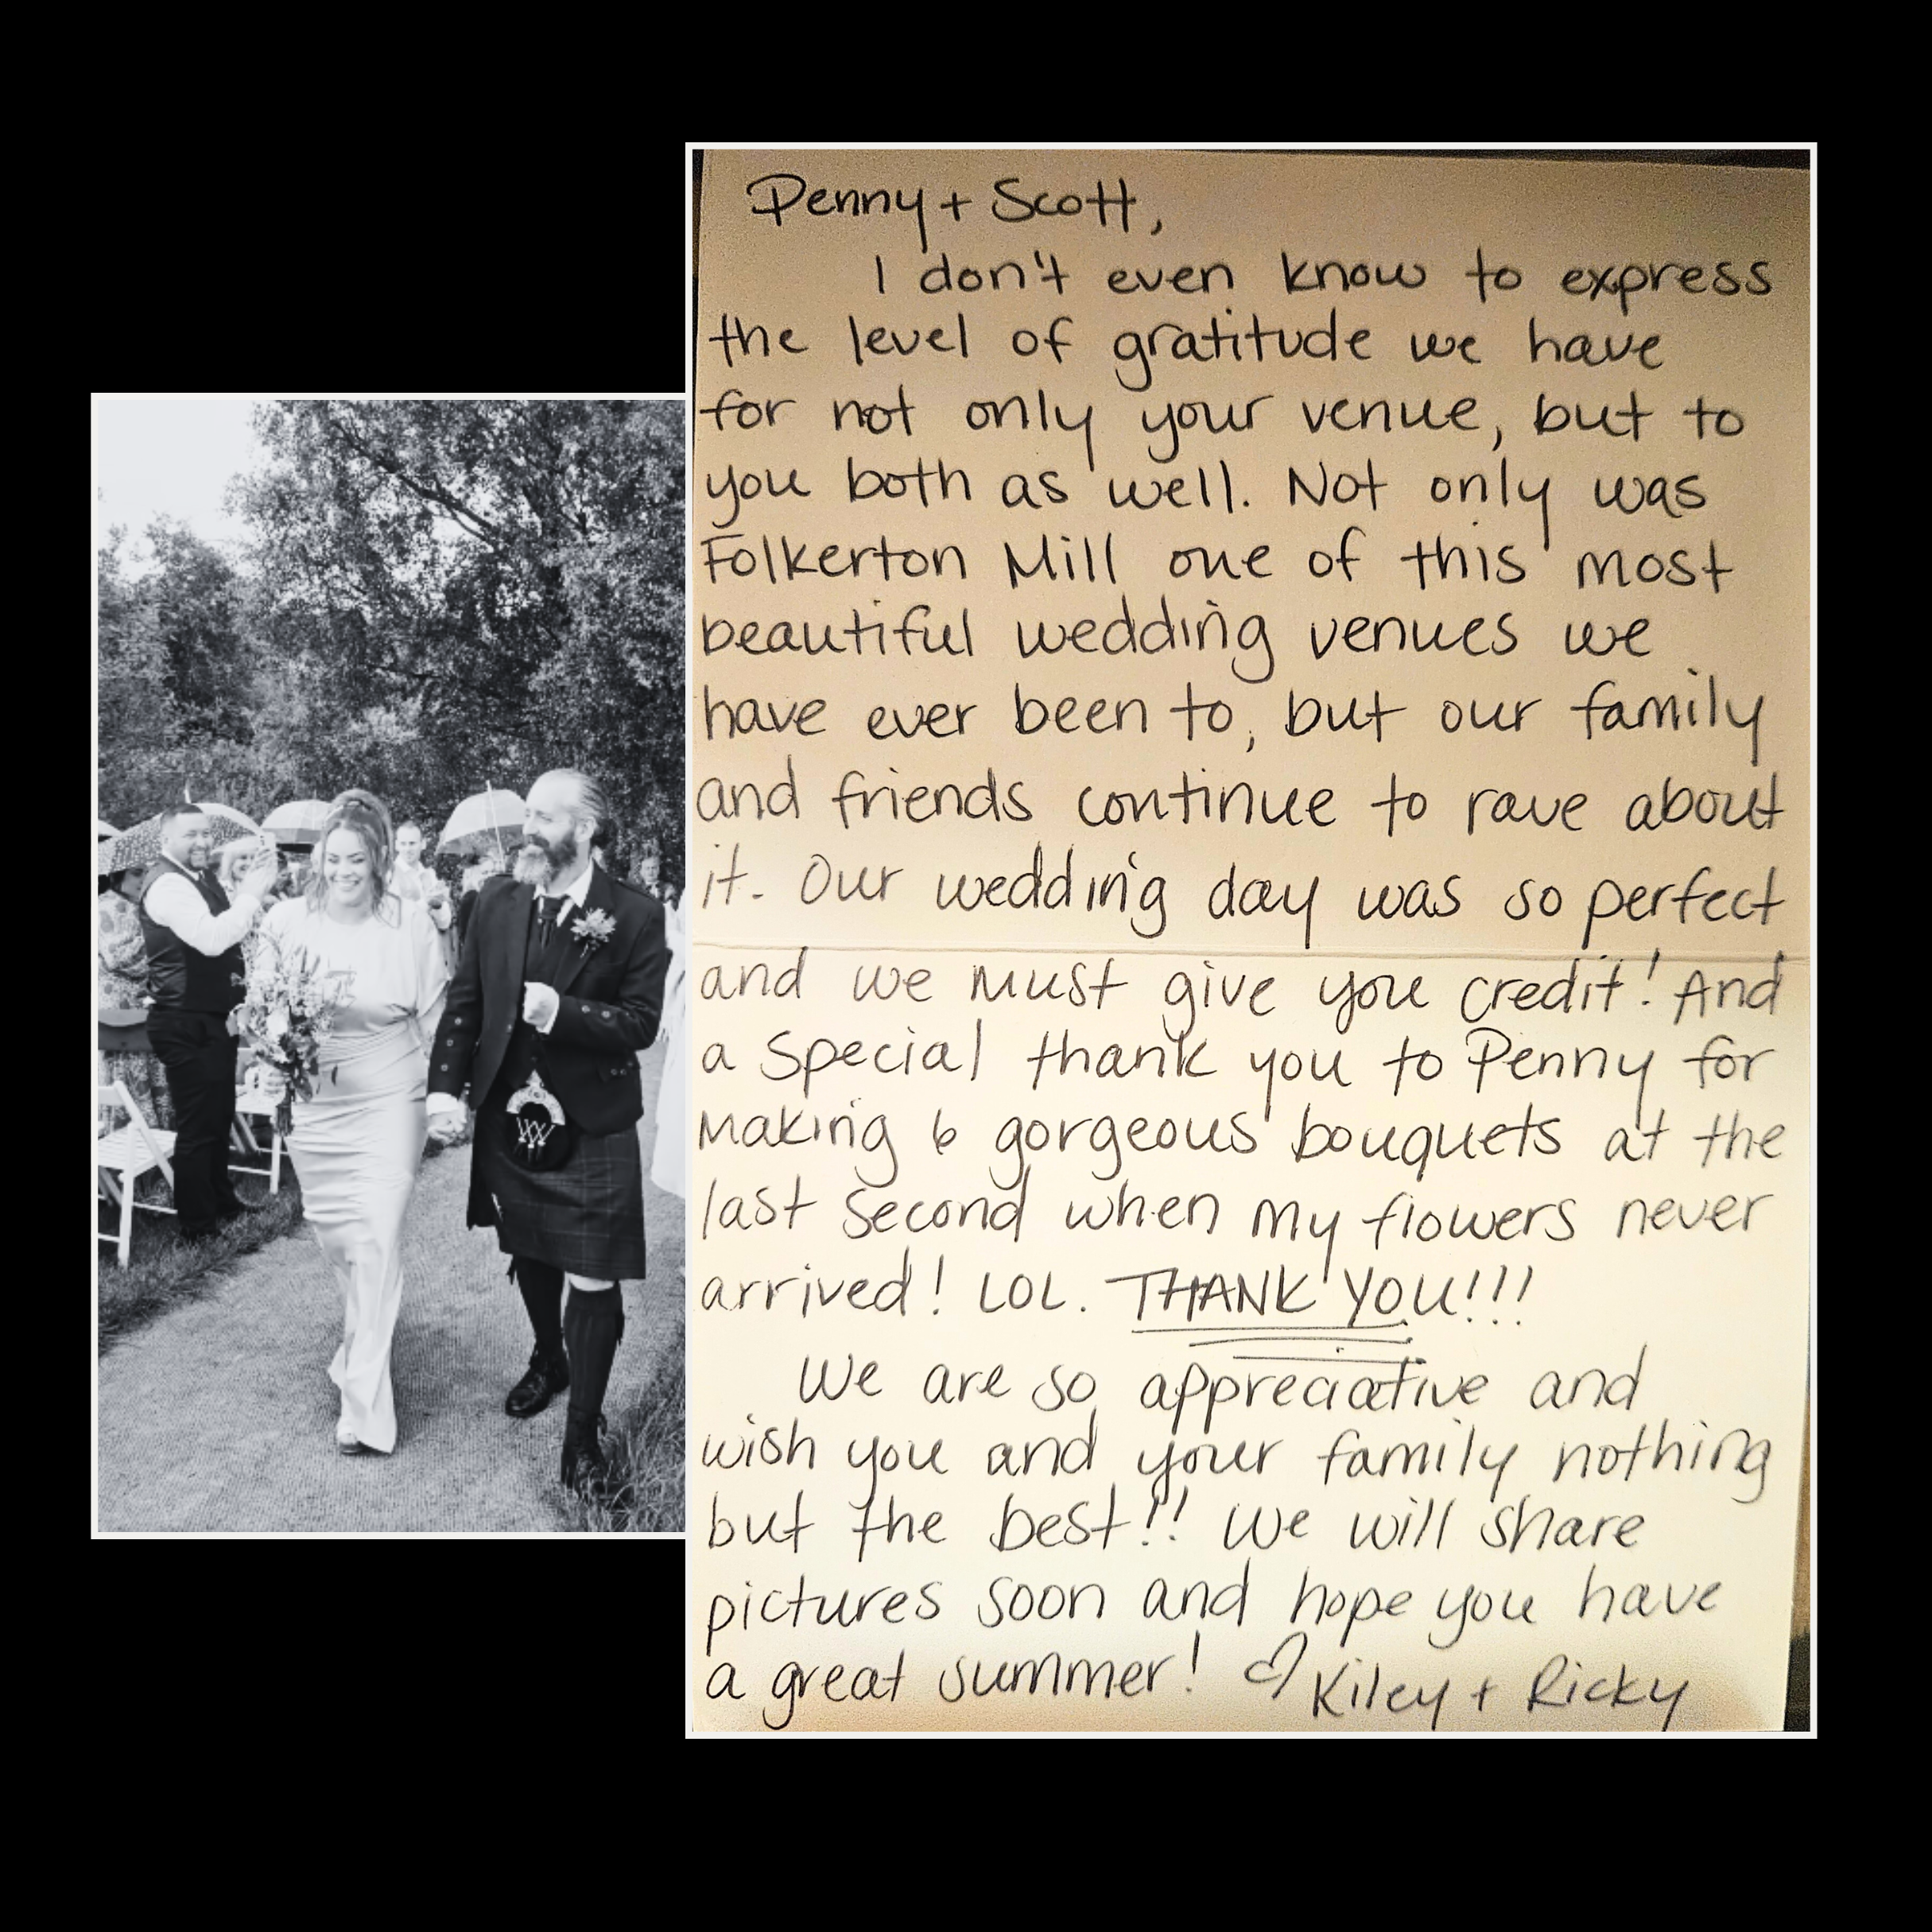 Penny + Scott,
I don't even know to express
the level of gratitude we have
for not only your venue, but to
you both as well. Not only was
Folkerton Mill one of this most
beautiful wedding venues we
have ever been to, but our family
and friends continue to rave about
it. Our wedding day was so perfect
and we must give you credit! And
a special thank you to Penny for
making 6 gorgeous bouquets at the
last second when my flowers never
arrived! LOL. THANK YOU!!!
We are so appreciative and
wish you and your family nothing
but the best!! We will share
pictures soon and hope you have
a great summer! ♡ Kiley + Ricky